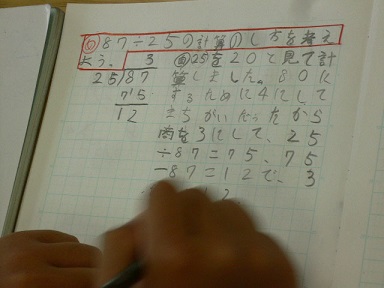 ◎87÷25の計算のしかたを考え
よう。
3
25)87
75
12
自25を20と見て計
算しました。80に
するために4にして
まちがいだったから
肉を3にして、25
÷87=75、75
-87=12で、3